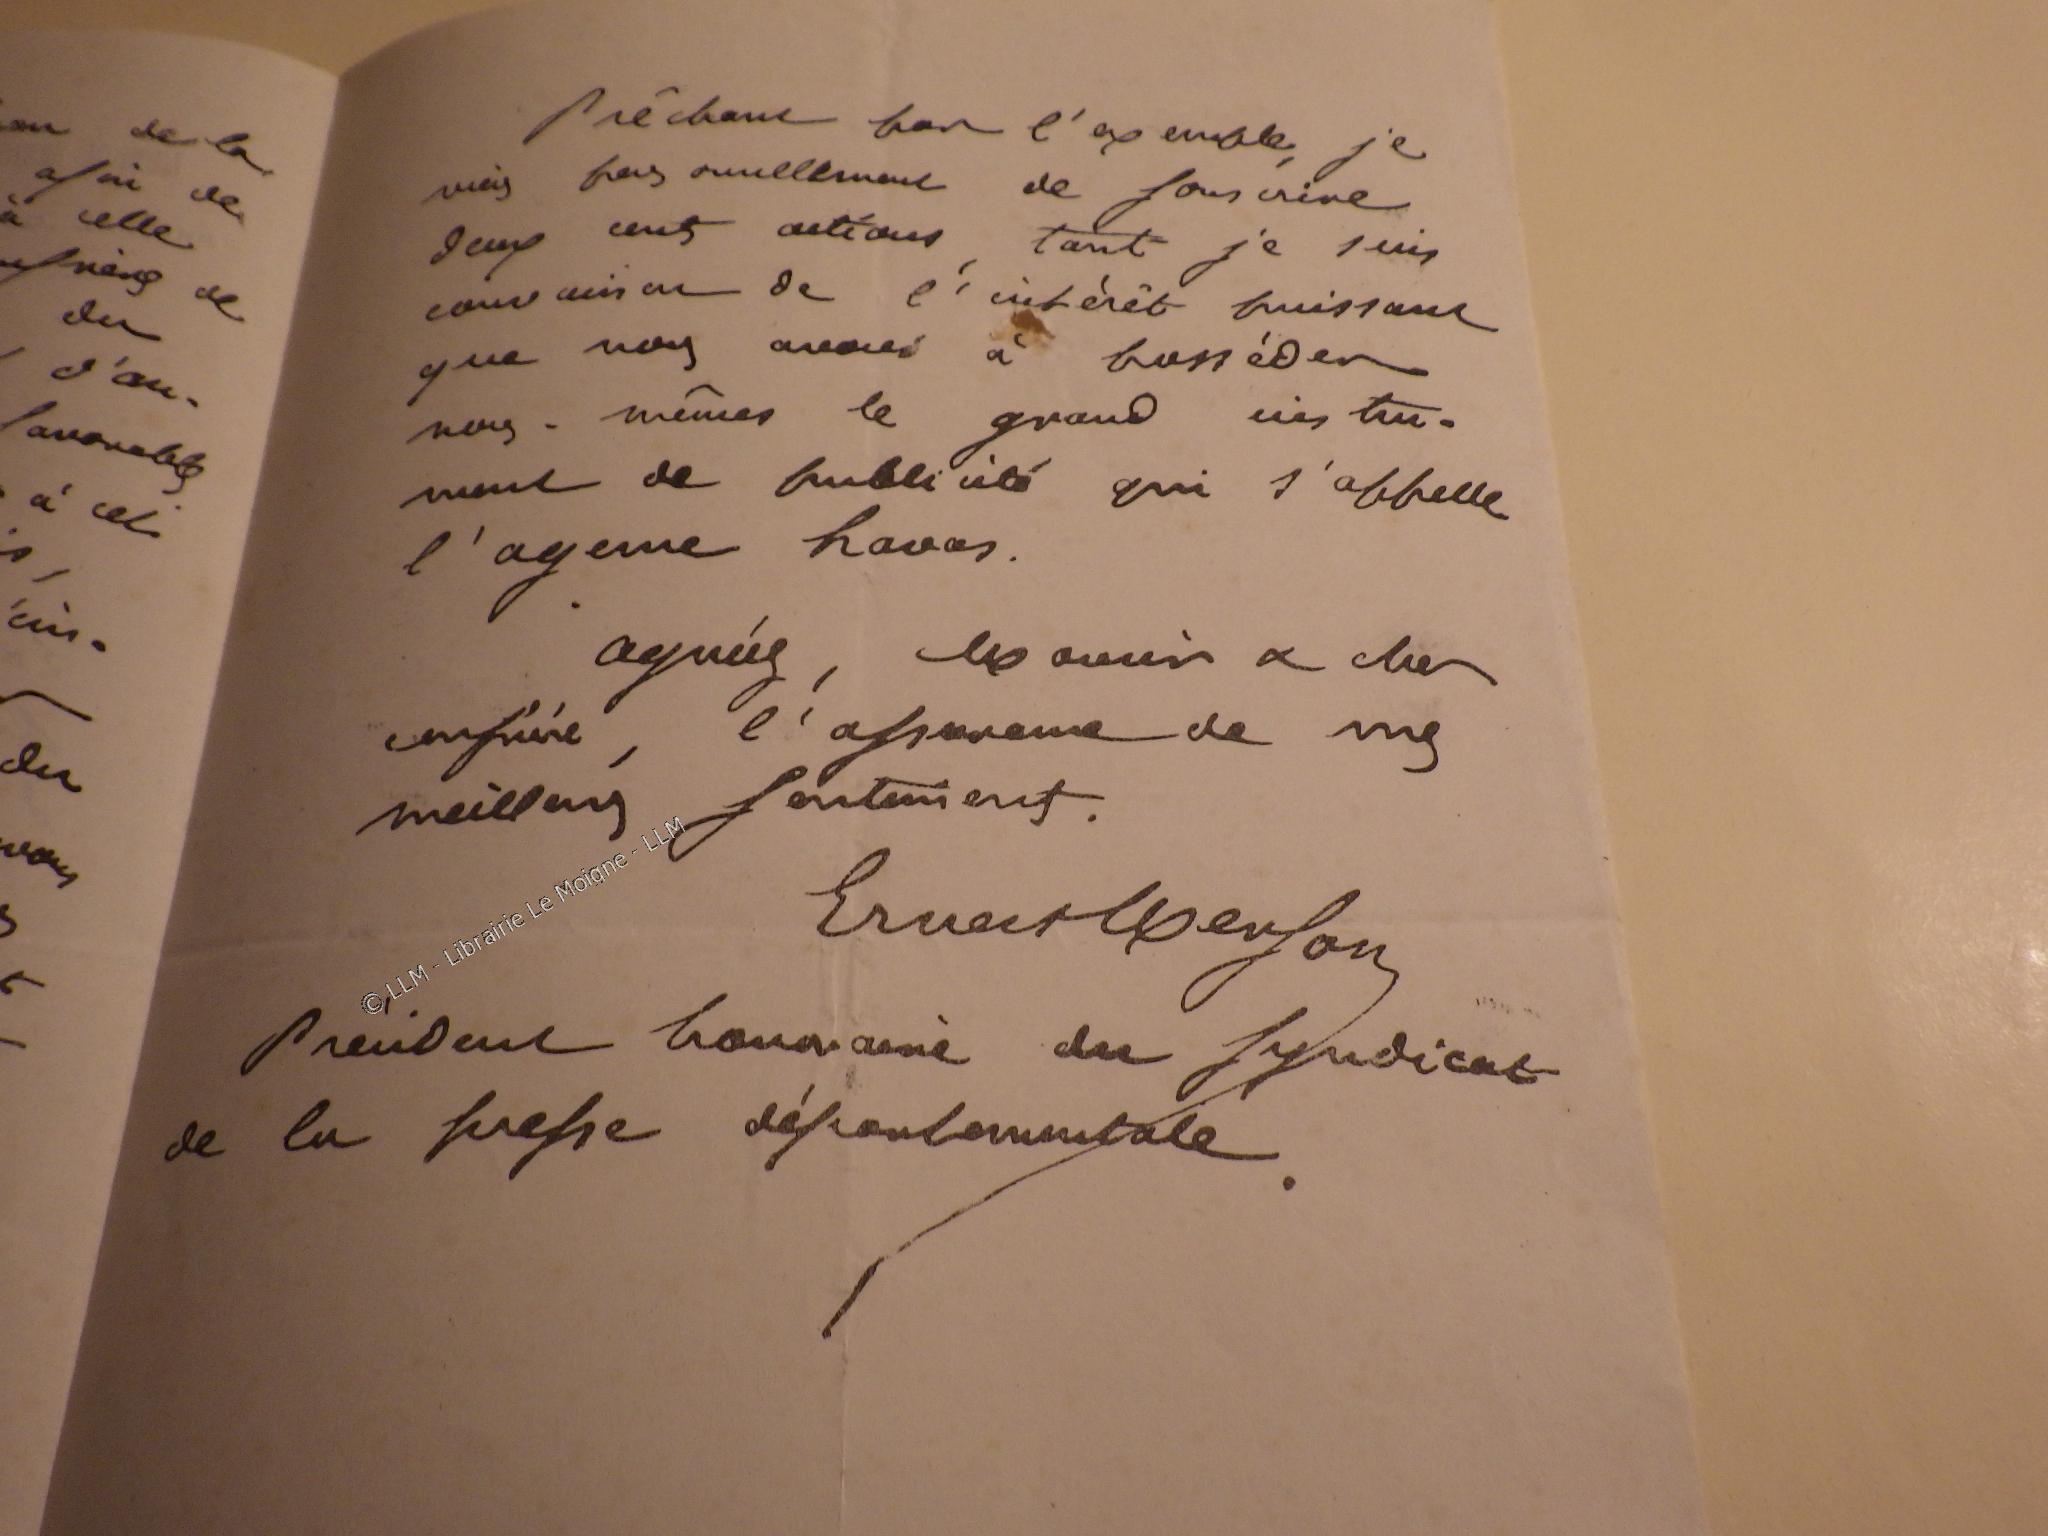 de la
afin de
à celle
de
du
d'au-
favorables
à cet
du
vous
Prêchant par l'exemple, je
viens personnellement de souscrire
deux cents actions, tant je suis
convaincu de l'intérêt puissant
que nous avons à posséder
nous-mêmes le grand instru-
ment de publicité qui s'appelle
l'agence havas.
agréez, cher
confrère, l'assurance de mes
meilleurs sentiments.
Ernest Merson
Président honoraire du Syndicat
de la presse départementale.
© LLM - Librairie Le Moigne - LLM